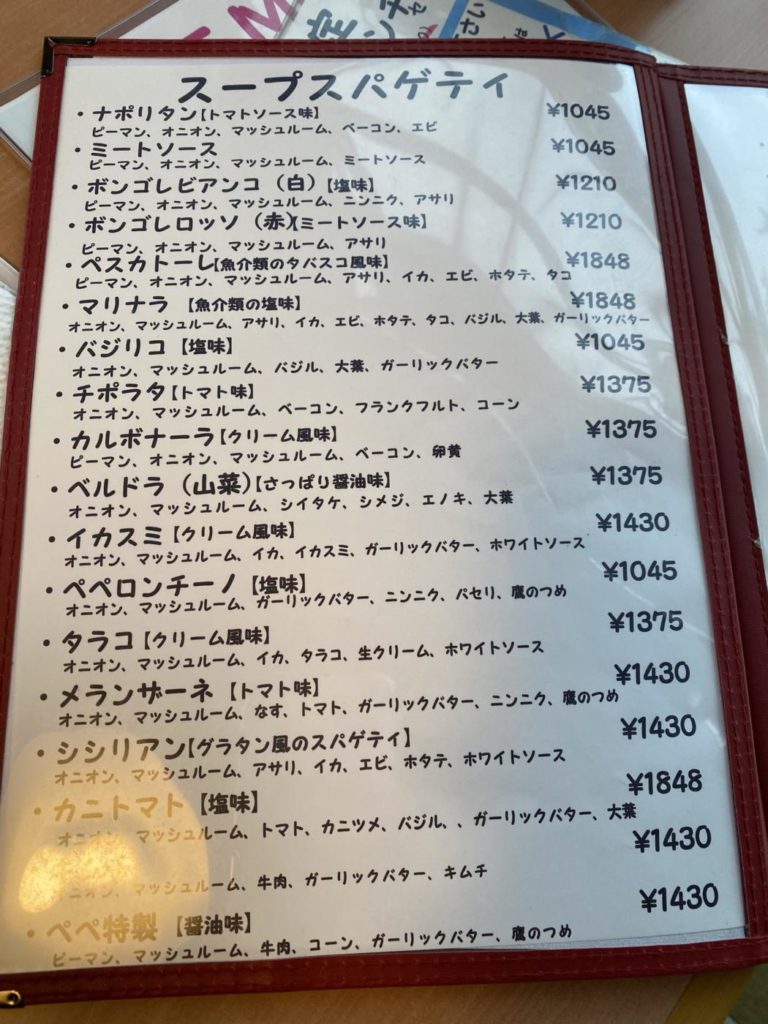 スープスパゲティ
・ナポリタン【トマトソース味】 ¥1045
ピーマン、オニオン、マッシュルーム、ベーコン、エビ
・ミートソース ¥1045
ピーマン、オニオン、マッシュルーム、ミートソース
・ボンゴレビアンコ（白）【塩味】 ¥1210
ピーマン、オニオン、マッシュルーム、ニンニク、アサリ
・ボンゴレロッソ（赤）【ミートソース味】 ¥1210
ピーマン、オニオン、マッシュルーム、アサリ
・ペスカトーレ【魚介類のタバスコ風味】 ¥1848
ピーマン、オニオン、マッシュルーム、アサリ、イカ、エビ、ホタテ、タコ
・マリナラ【魚介類の塩味】 ¥1848
オニオン、マッシュルーム、アサリ、イカ、エビ、ホタテ、タコ、バジル、大葉、ガーリックバター
・バジリコ【塩味】 ¥1045
オニオン、マッシュルーム、バジル、大葉、ガーリックバター
・チポラタ【トマト味】 ¥1375
オニオン、マッシュルーム、ベーコン、フランクフルト、コーン
・カルボナーラ【クリーム風味】 ¥1375
ピーマン、オニオン、マッシュルーム、ベーコン、卵黄
・ベルドラ（山菜）【さっぱり醤油味】 ¥1375
オニオン、マッシュルーム、シイタケ、シメジ、エノキ、大葉
・イカスミ【クリーム風味】 ¥1430
オニオン、マッシュルーム、イカ、イカスミ、ガーリックバター、ホワイトソース
・ペペロンチーノ【塩味】 ¥1045
オニオン、マッシュルーム、ガーリックバター、ニンニク、パセリ、鷹のつめ
・タラコ【クリーム風味】 ¥1375
オニオン、マッシュルーム、イカ、タラコ、生クリーム、ホワイトソース
・メランザーネ【トマト味】 ¥1430
オニオン、マッシュルーム、なす、トマト、ガーリックバター、ニンニク、鷹のつめ
・シシリアン【グラタン風のスパゲティ】 ¥1430
オニオン、マッシュルーム、アサリ、イカ、エビ、ホタテ、ホワイトソース
・カニトマト【塩味】 ¥1848
オニオン、マッシュルーム、トマト、カニツメ、バジル、、ガーリックバター、大葉
¥1430
オニオン、マッシュルーム、牛肉、ガーリックバター、キムチ
・ペペ特製【醤油味】 ¥1430
ピーマン、マッシュルーム、牛肉、コーン、ガーリックバター、鷹のつめ